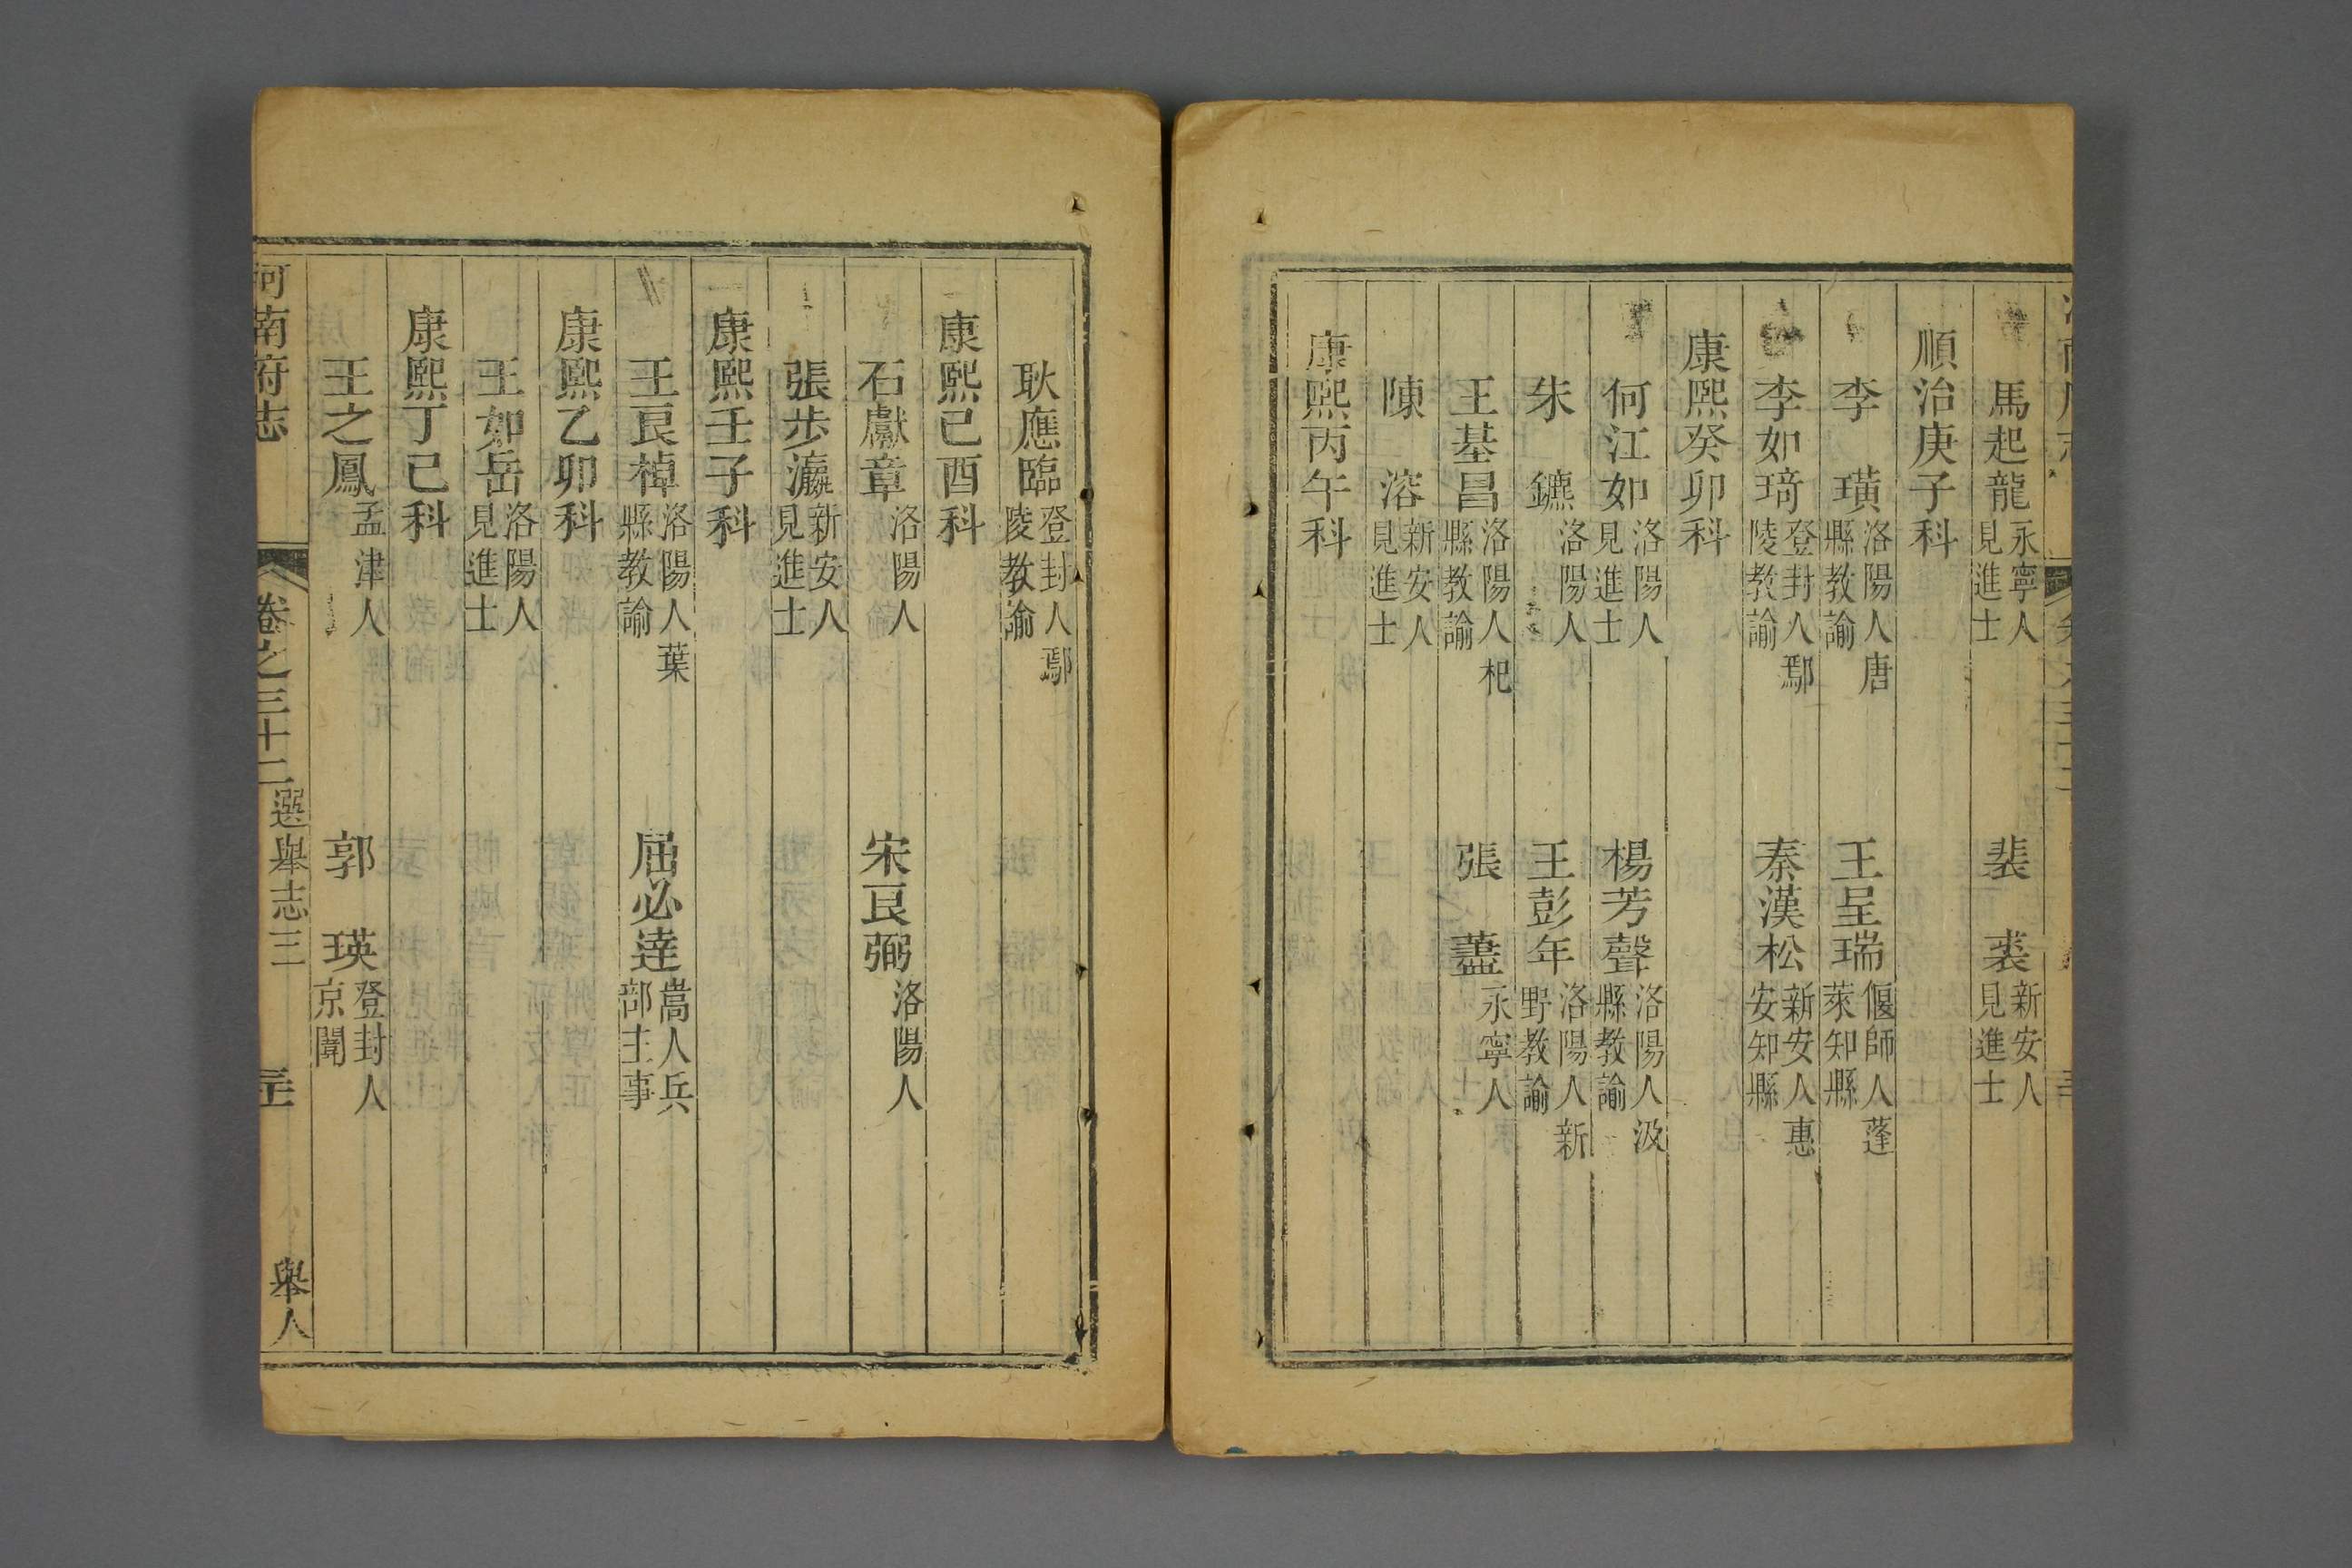 馬起龍 永寧人見進士 裴 裘 新安人見進士
順治庚子科
李 璜 洛陽人唐縣教諭 王呈瑞 偃師人蓬萊知縣
李如琦 登封人鄢陵教諭 秦漢松 新安人惠安知縣
康熙癸卯科
何江如 洛陽人見進士 楊芳聲 洛陽人汲縣教諭
朱 鑣 洛陽人 王彭年 洛陽人新野教諭
王基昌 洛陽人杞縣教諭 張 藎 永寧人
陳 溶 新安人見進士
康熙丙午科
耿應臨 登封人鄢陵教諭
康熙己酉科
石獻章 洛陽人 宋艮弼 洛陽人
張步瀛 新安人見進士
康熙壬子科
王艮棹 洛陽人葉縣教諭 屈必達 嵩人兵部主事
康熙乙卯科
王如岳 洛陽人見進士
康熙丁己科
王之鳳 孟津人 郭 瑛 登封人京闈
河南府志 卷之三十二 選舉志三 舉人